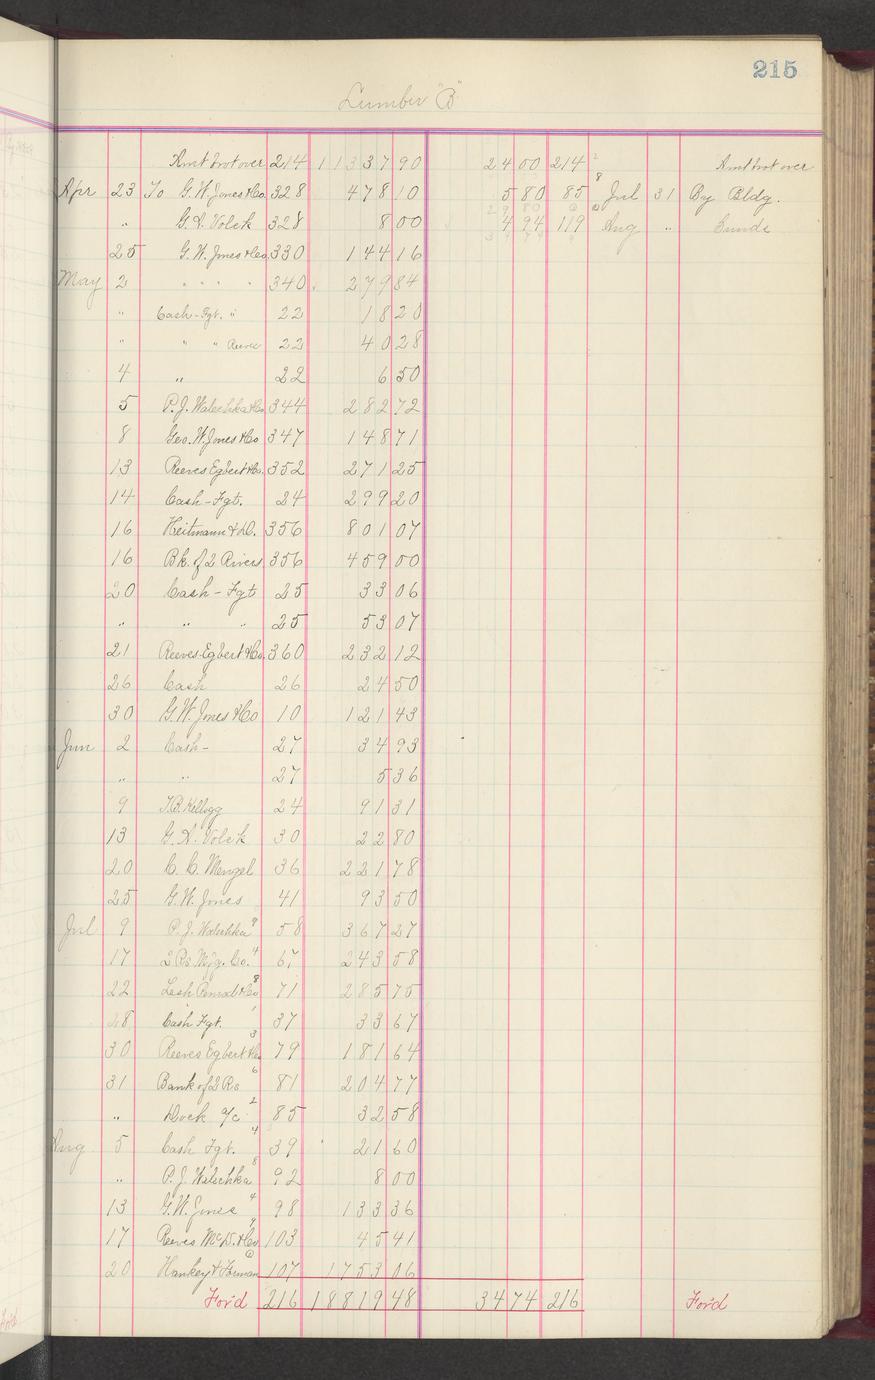 215
Lumber "B"
Amt brot over 214 11337 90 24 00 214 Amt brot over
Apr 23 To G.W. Jones & Co. 328 478 10 5 80 85 Jul 31 By Bldg.
" G.A. Volck 328 8 00 4 94 119 Aug " Sunds
25 G.W. Jones & Co. 330 144 16
May 2 " " " " 340 279 84
" Cash - Fgt. " 22 18 20
" " " Reeves 22 40 28
4 " 22 6 50
5 P.J. Walschka & Co 344 282 72
8 Geo. W. Jones & Co 347 148 71
13 Reeves Egbert & Co. 352 271 25
14 Cash - Fgt. 24 299 20
16 Heitmann & Co. 356 801 07
16 Bk. of 2 Rivers 356 459 00
20 Cash - Fgt 25 33 06
" " " 25 53 07
21 Reeves-Egbert & Co. 360 232 12
26 Cash 26 24 50
30 G.W. Jones & Co 10 121 43
Jun 2 Cash - 27 34 93
" " 27 5 36
9 T.B. Kellogg 24 91 31
13 G.A. Volck 30 22 80
20 C.C. Mengel 36 221 78
25 G.W. Jones 41 93 50
Jul 9 P.J. Walschka 9 58 367 27
17 2 Rs Mfg. Co. 4 67 243 58
22 Lesh & Co 8 71 285 75
28 Cash Fgt. 1 37 33 67
30 Reeves Egbert & Co. 3 79 181 64
31 Bank of 2 Rs 6 81 204 77
" Dock a/c 2 85 32 58
Aug 5 Cash Fgt. 4 39 21 60
" P.J. Walschka 8 92 8 00
13 G.W. Jones 4 98 133 36
17 Reeves McD. & Co. 9 103 45 41
20 Hankey & 107 1753 06
For'd 216 18819 48 34 74 216 For'd